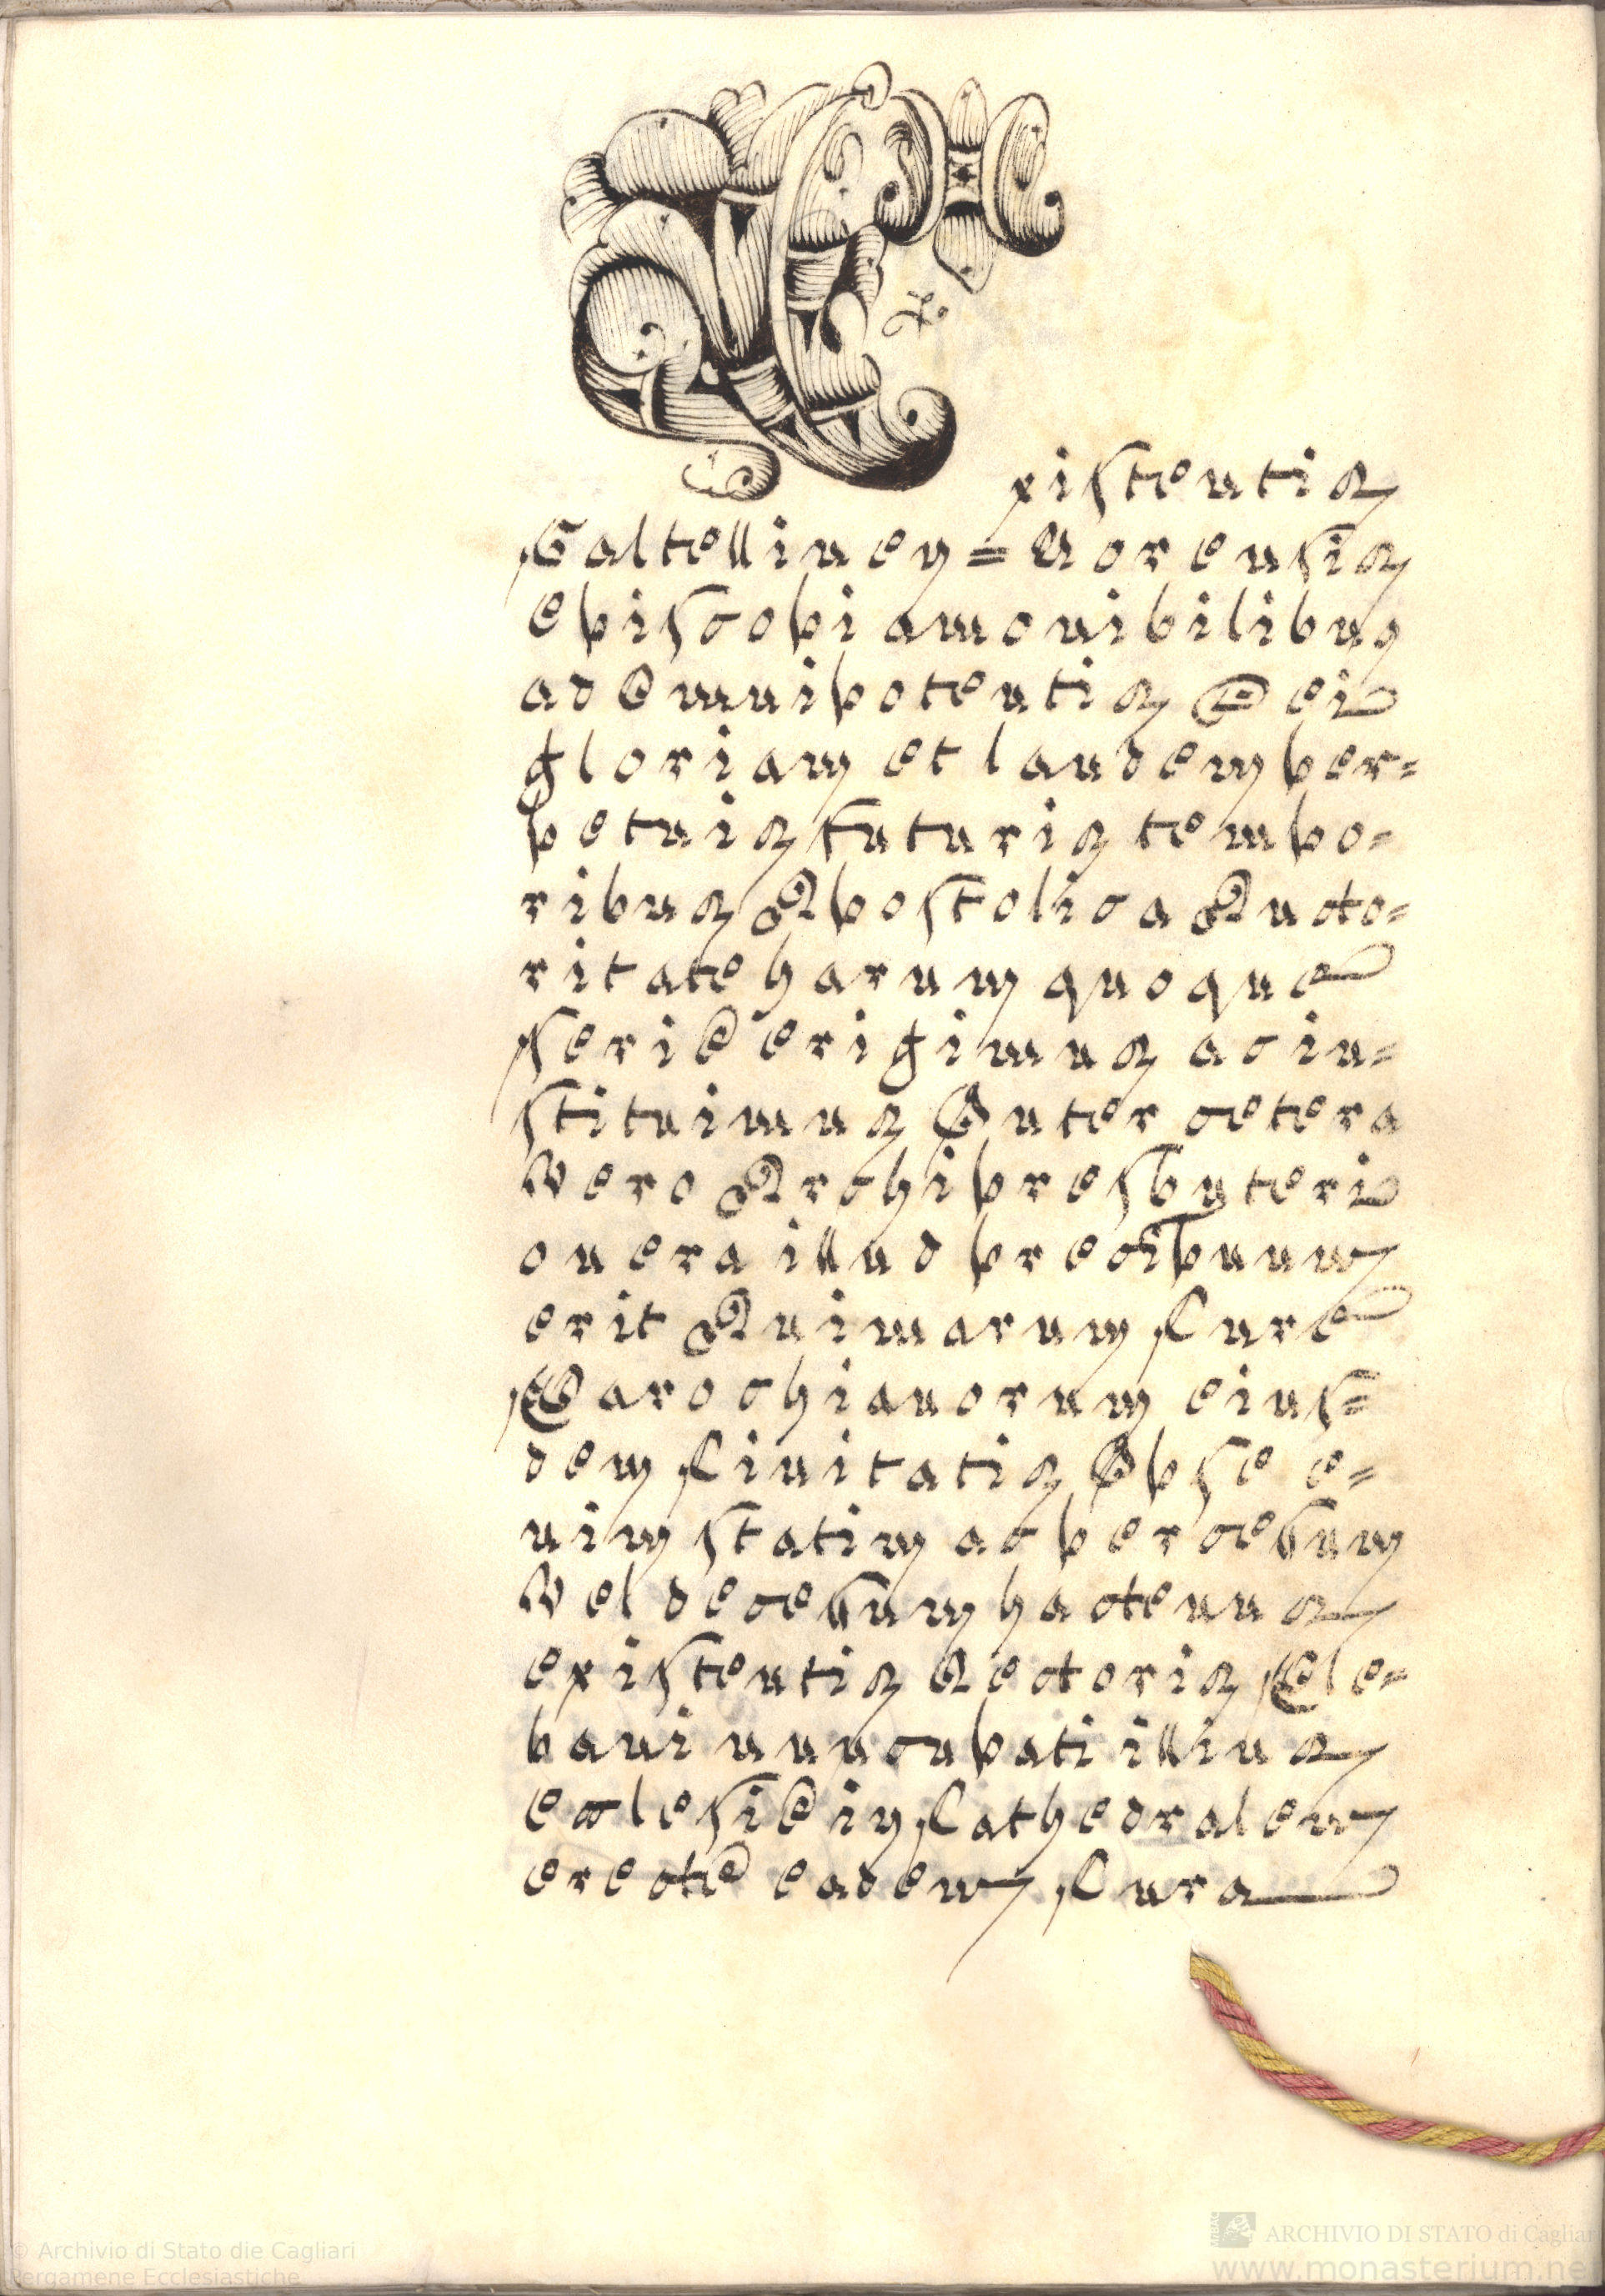 Existentis
Galtellinen=Norensis
episcopi amonibilibus
ad Omnipotentis Dei
gloriam et laudem per=
petuis futuris tempo=
ribus Apostolica Aucto=
ritate harum quoque
serie erigimus ac in=
stituimus Inter cetera
vero Archipresbyteri
onera illud precipuum
erit Animarum Cure
Parochianorum eius=
dem Civitatis Ipse e=
nim statim ac per cessum
vel decessum hactenus
existentis Rectoris Ple=
bani nuncupati illius
ecclesie in Cathedralem
erecte eadem Cura
© Archivio di Stato die Cagliari
Pergamene Ecclesiastiche
ARCHIVIO DI STATO di Cagliari
www.monasterium.ne